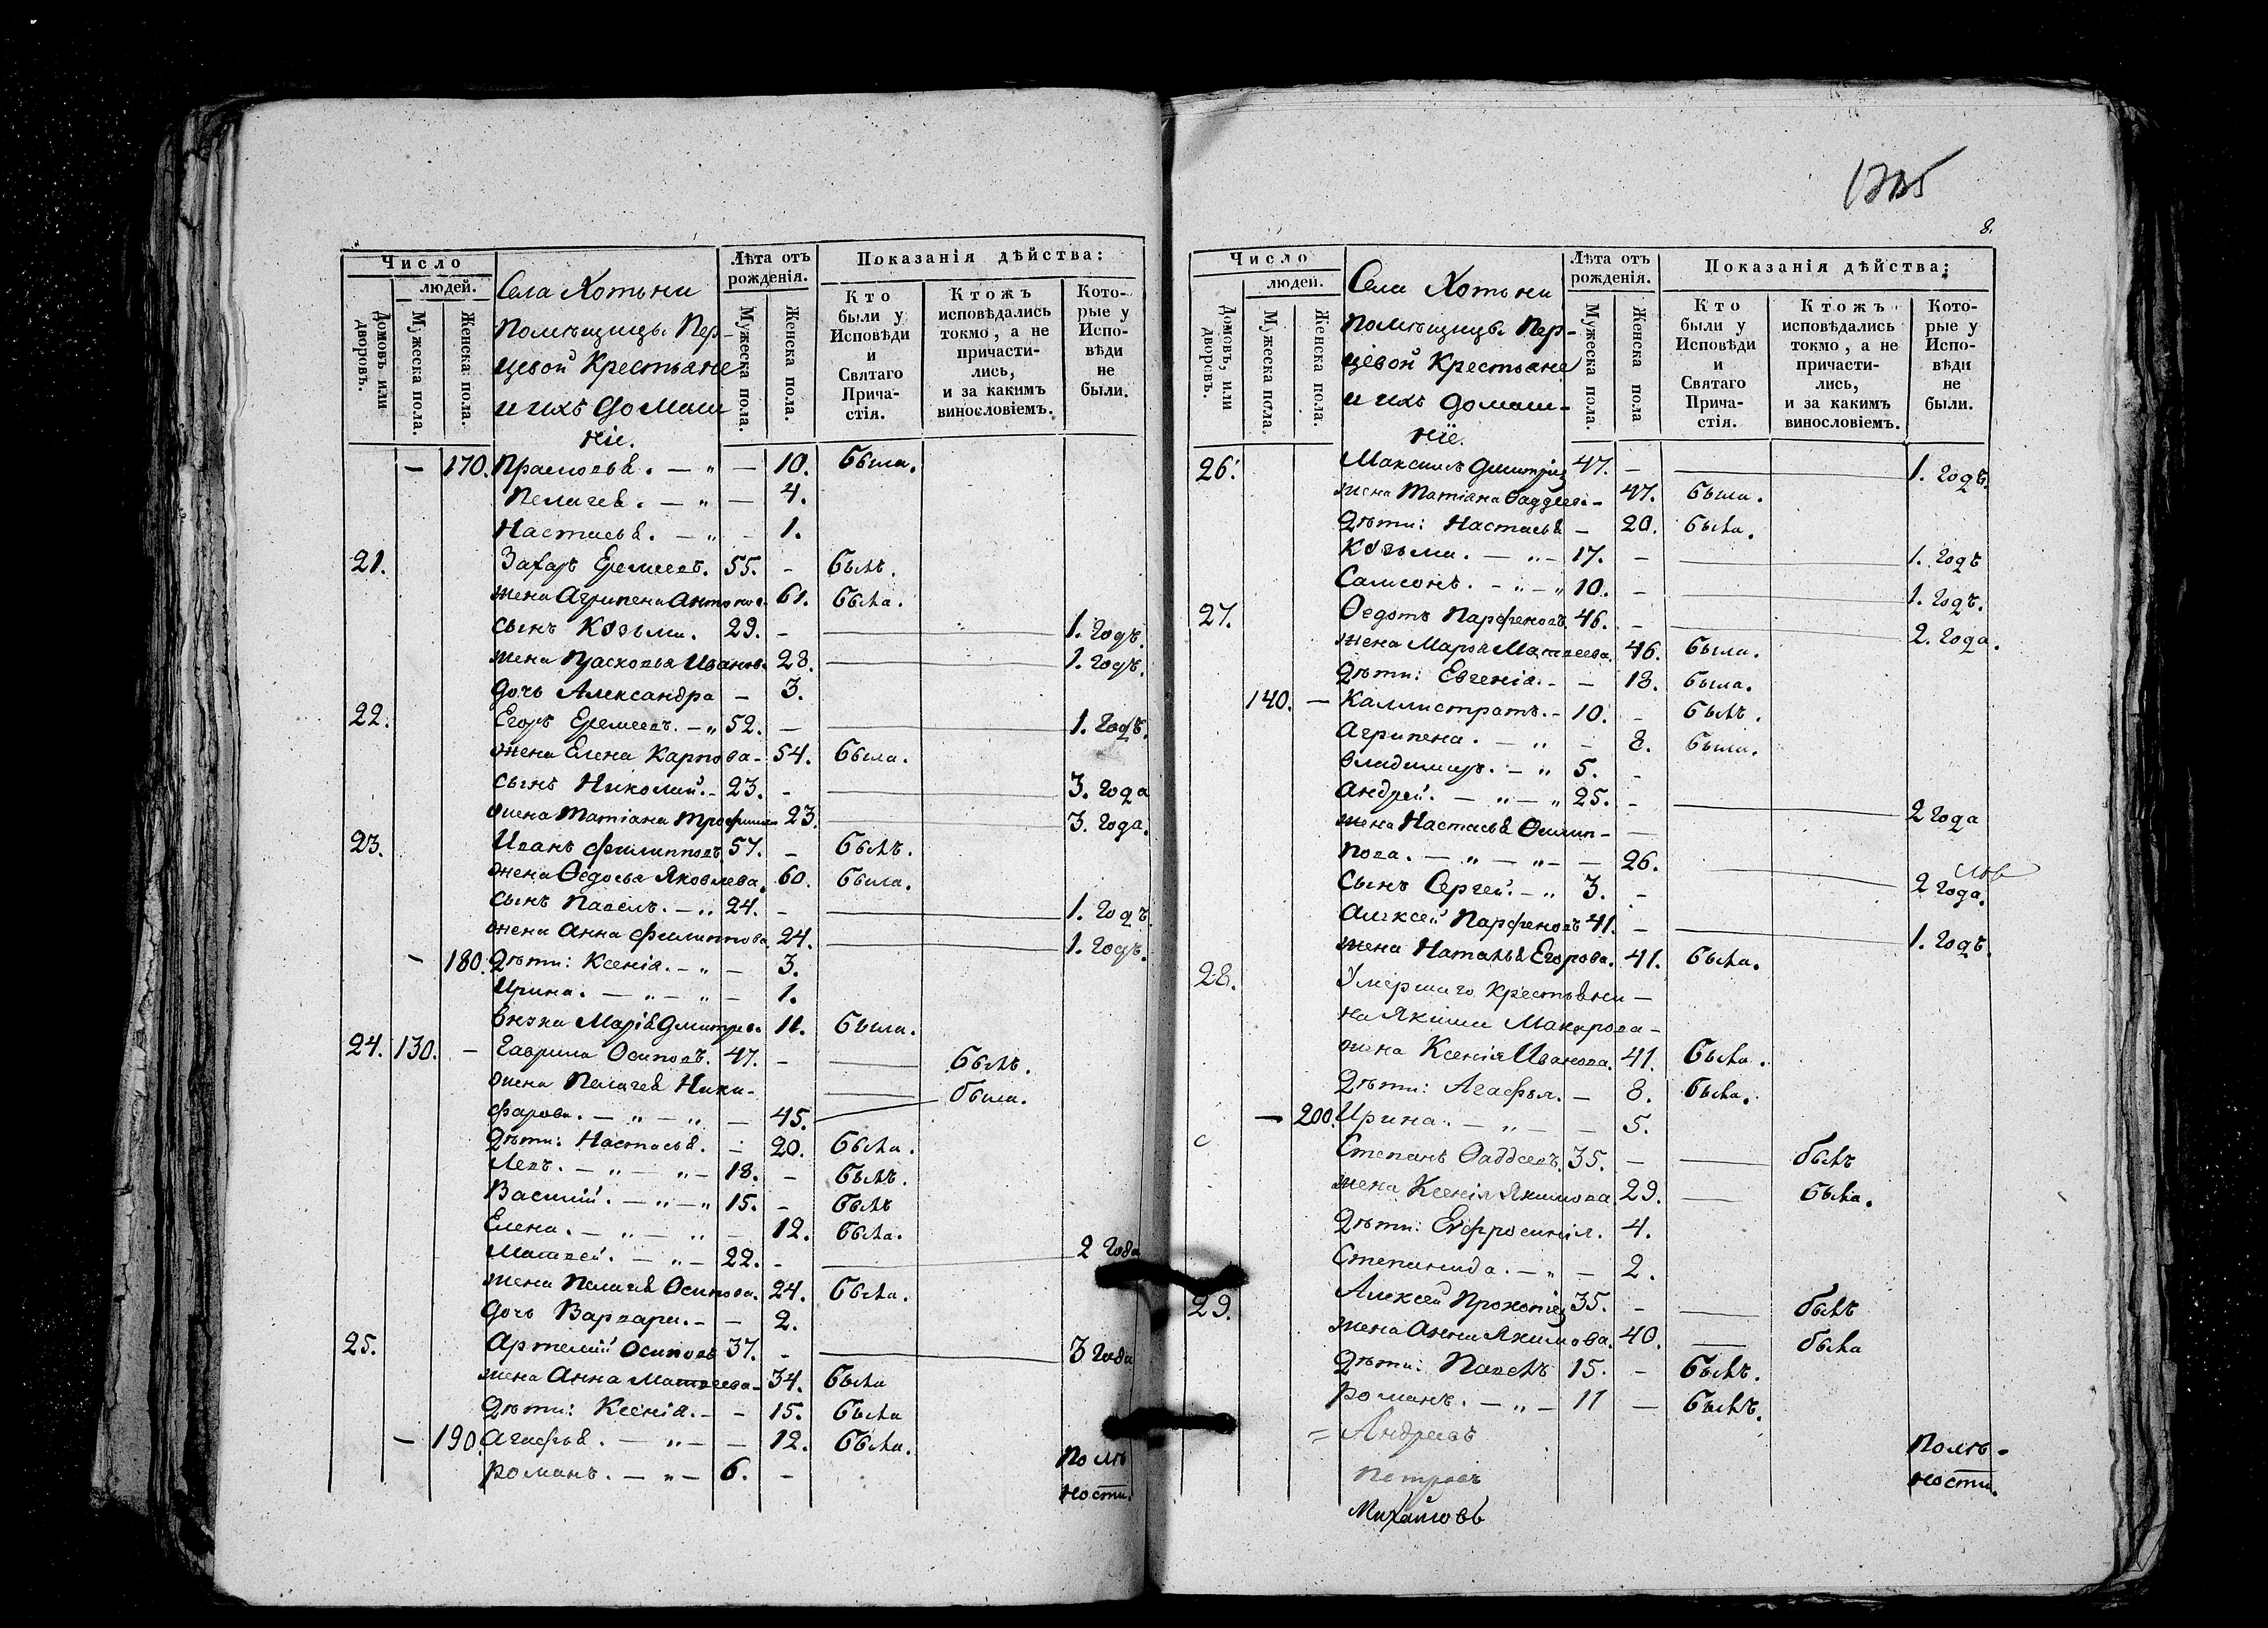 Число
людей.
Домовъ или дворовъ.
Мужеска пола.
Женска пола.
Села Хотыни
помѣщицы Пер-
цевой Крестьяне
и ихъ домаш
ніе.
Лѣта отъ рожденія.
Мужеска пола.
Женска пола.
Показанія дѣйства:
Кто были у Исповѣди и Святаго Прича-стія.
Ктожъ исповѣдались токмо, а не причасти-лись, и за какимъ винословіемъ.
Кото-рые у Испо-вѣди не были.
— 170. Прасковья. — „ — 10. была.
Пелагея. — „ — 4.
Настасья. — „ - 1.
21. Захаръ Еремеевъ. 55. - былъ.
жена Агрипена Антонов. 61. была.
сынъ Козьма. 29. - 1. годъ.
жена Прасковья Иванов. 28. 1. годъ.
дочь Александра — 3.
22. Егоръ Еремеевъ. — „ 52. — 1. годъ.
жена Елена Карпова - 54. была.
сынъ Николай. - 23. - 3. года
жена Татіана Трофим 23. 3. года.
23. Иванъ Филипповъ 57. - былъ.
жена Ѳедосья Яковлева. 60. была.
сынъ Павелъ. — „ 24. - 1. годъ
жена Анна Филиппова 24. 1. годъ.
- 180. Дѣти: Ксенія. - „ — 3.
Ирина. — „ — „ — 1.
внука Марія Дмитрев. 11. была.
24. 130. — Гаврила Осиповъ. 47. - былъ.
жена Пелагея Ники-
фарова. — „ — „ — 45. была.
Дѣти: Настасья. - 20. была.
Левъ. — „ — „ — 18. - былъ.
Василій. — „ — „ 15. - былъ
Елена. — „ — „ — 12. была.
Матвей. — „ — 22. - 2 года
жена Пелагея Осипова. 24. была.
дочь Варвара. - — 2.
25. Артемій Осиповъ 37. - 3 года
жена Анна Матвеева - 34. была
Дѣти: Ксенія. - - 15. была
— 190. Агафья. — „ — — 12. была.
Романъ. — „ — 6. - По лѣ
ности.
1225
8.
Число
людей.
Домовъ, или дворовъ.
Мужеска пола.
Женска пола.
Села Хотыни
помѣщицы Пер-
цевой Крестьяне
и ихъ домаш-
ніе.
Лѣта отъ рожденія.
Мужеска пола.
Женска пола
Показанія дѣйства:
Кто были у Исповѣди и Святаго Прича-стія.
Ктожъ исповѣдались токмо, а не причасти-лись, и за какимъ винословіемъ.
Кото-рые у Испо-вѣди не были.
26. Максимъ Дмитріев 47. - 1. годъ.
жена Татіана Ѳаддеев - 47. была.
Дѣти: Настасья - 20. была.
Козьма. — „ - 17. - 1. годъ
Самсонъ. - „ — „ 10. - 1. годъ.
27. Ѳедотъ Парфеновъ. 46. - 2. года.
жена Марѳа Матвеева. 46. была.
Дѣти: Евгенія. - — 18. была.
140. — Каллистратъ. - 10. - былъ.
Агрипена. — „ — 8. была.
Владимиръ. — „ 5. -
Андрей. — „ — „ 25. - 2 года
жена Настасья Филип - —
пова. — „ — „ - — 26. 2 года.
сынъ Сергей. - „ 3. -
Алексей Парфеновъ 41. - 1. годъ.
жена Наталья Егорова. 41. была.
28. Умершаго крестьяни —
на Якима Макарова -
жена Ксенія Иванова. 41. была.
Дѣти: Агафья. — 8. была.
— 200. Ирина. — „ — — 5.
Степанъ Ѳаддеевъ. 35. — былъ
жена Ксенія Якимова 29. была.
Дѣти: Ефросинія. 4.
Степанида. — „ — 2.
29. Алексей Прокопіев 35. - былъ
жена Анна Якимова. 40. была
Дѣти: Павелъ 15. - былъ.
Романъ. — „ — 11 — былъ.
= Андреевъ По лѣ-
Петровъ ности.
Михайловъ